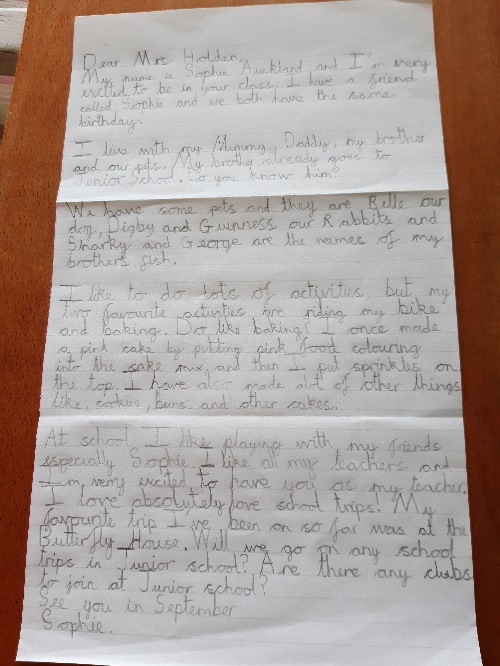 Dear Mrs Holden,
My name is Sophie Auckland and I'm very
excited to be in your class. I have a friend
called Sophie and we both have the same
birthday.
I live with my Mummy, Daddy, my brother
and our pets. My brother already goes to
Junior School. Do you know him?
We have some pets and they are Belle our
dog, Digby and Guinness our Rabbits and
Sharky and George are the names of my
brothers fish.
I like to do lots of activities, but my
two favourite activities are riding my bike
and baking. Do like baking? I once made
a pink cake by putting pink food colouring
into the cake mix and then I put sprinkles on
the top. I have also made alot of other things
like, cookies, buns and other cakes.
At school I like playing with my friends
especially Sophie. I like all my teachers and
I'm very excited to have you as my teacher.
I love absolutely love school trips! My
favourite trip I've been on so far was at the
Butterfly House. Will we go on any school
trips in Junior school? Are there any clubs
to join at Junior school?
See you in September
Sophie.